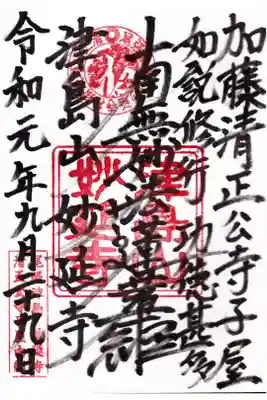 加藤清正公寺子屋
如説修行 功徳甚多
南無妙法蓮華経
津島山妙延寺
令和元年九月二十九日